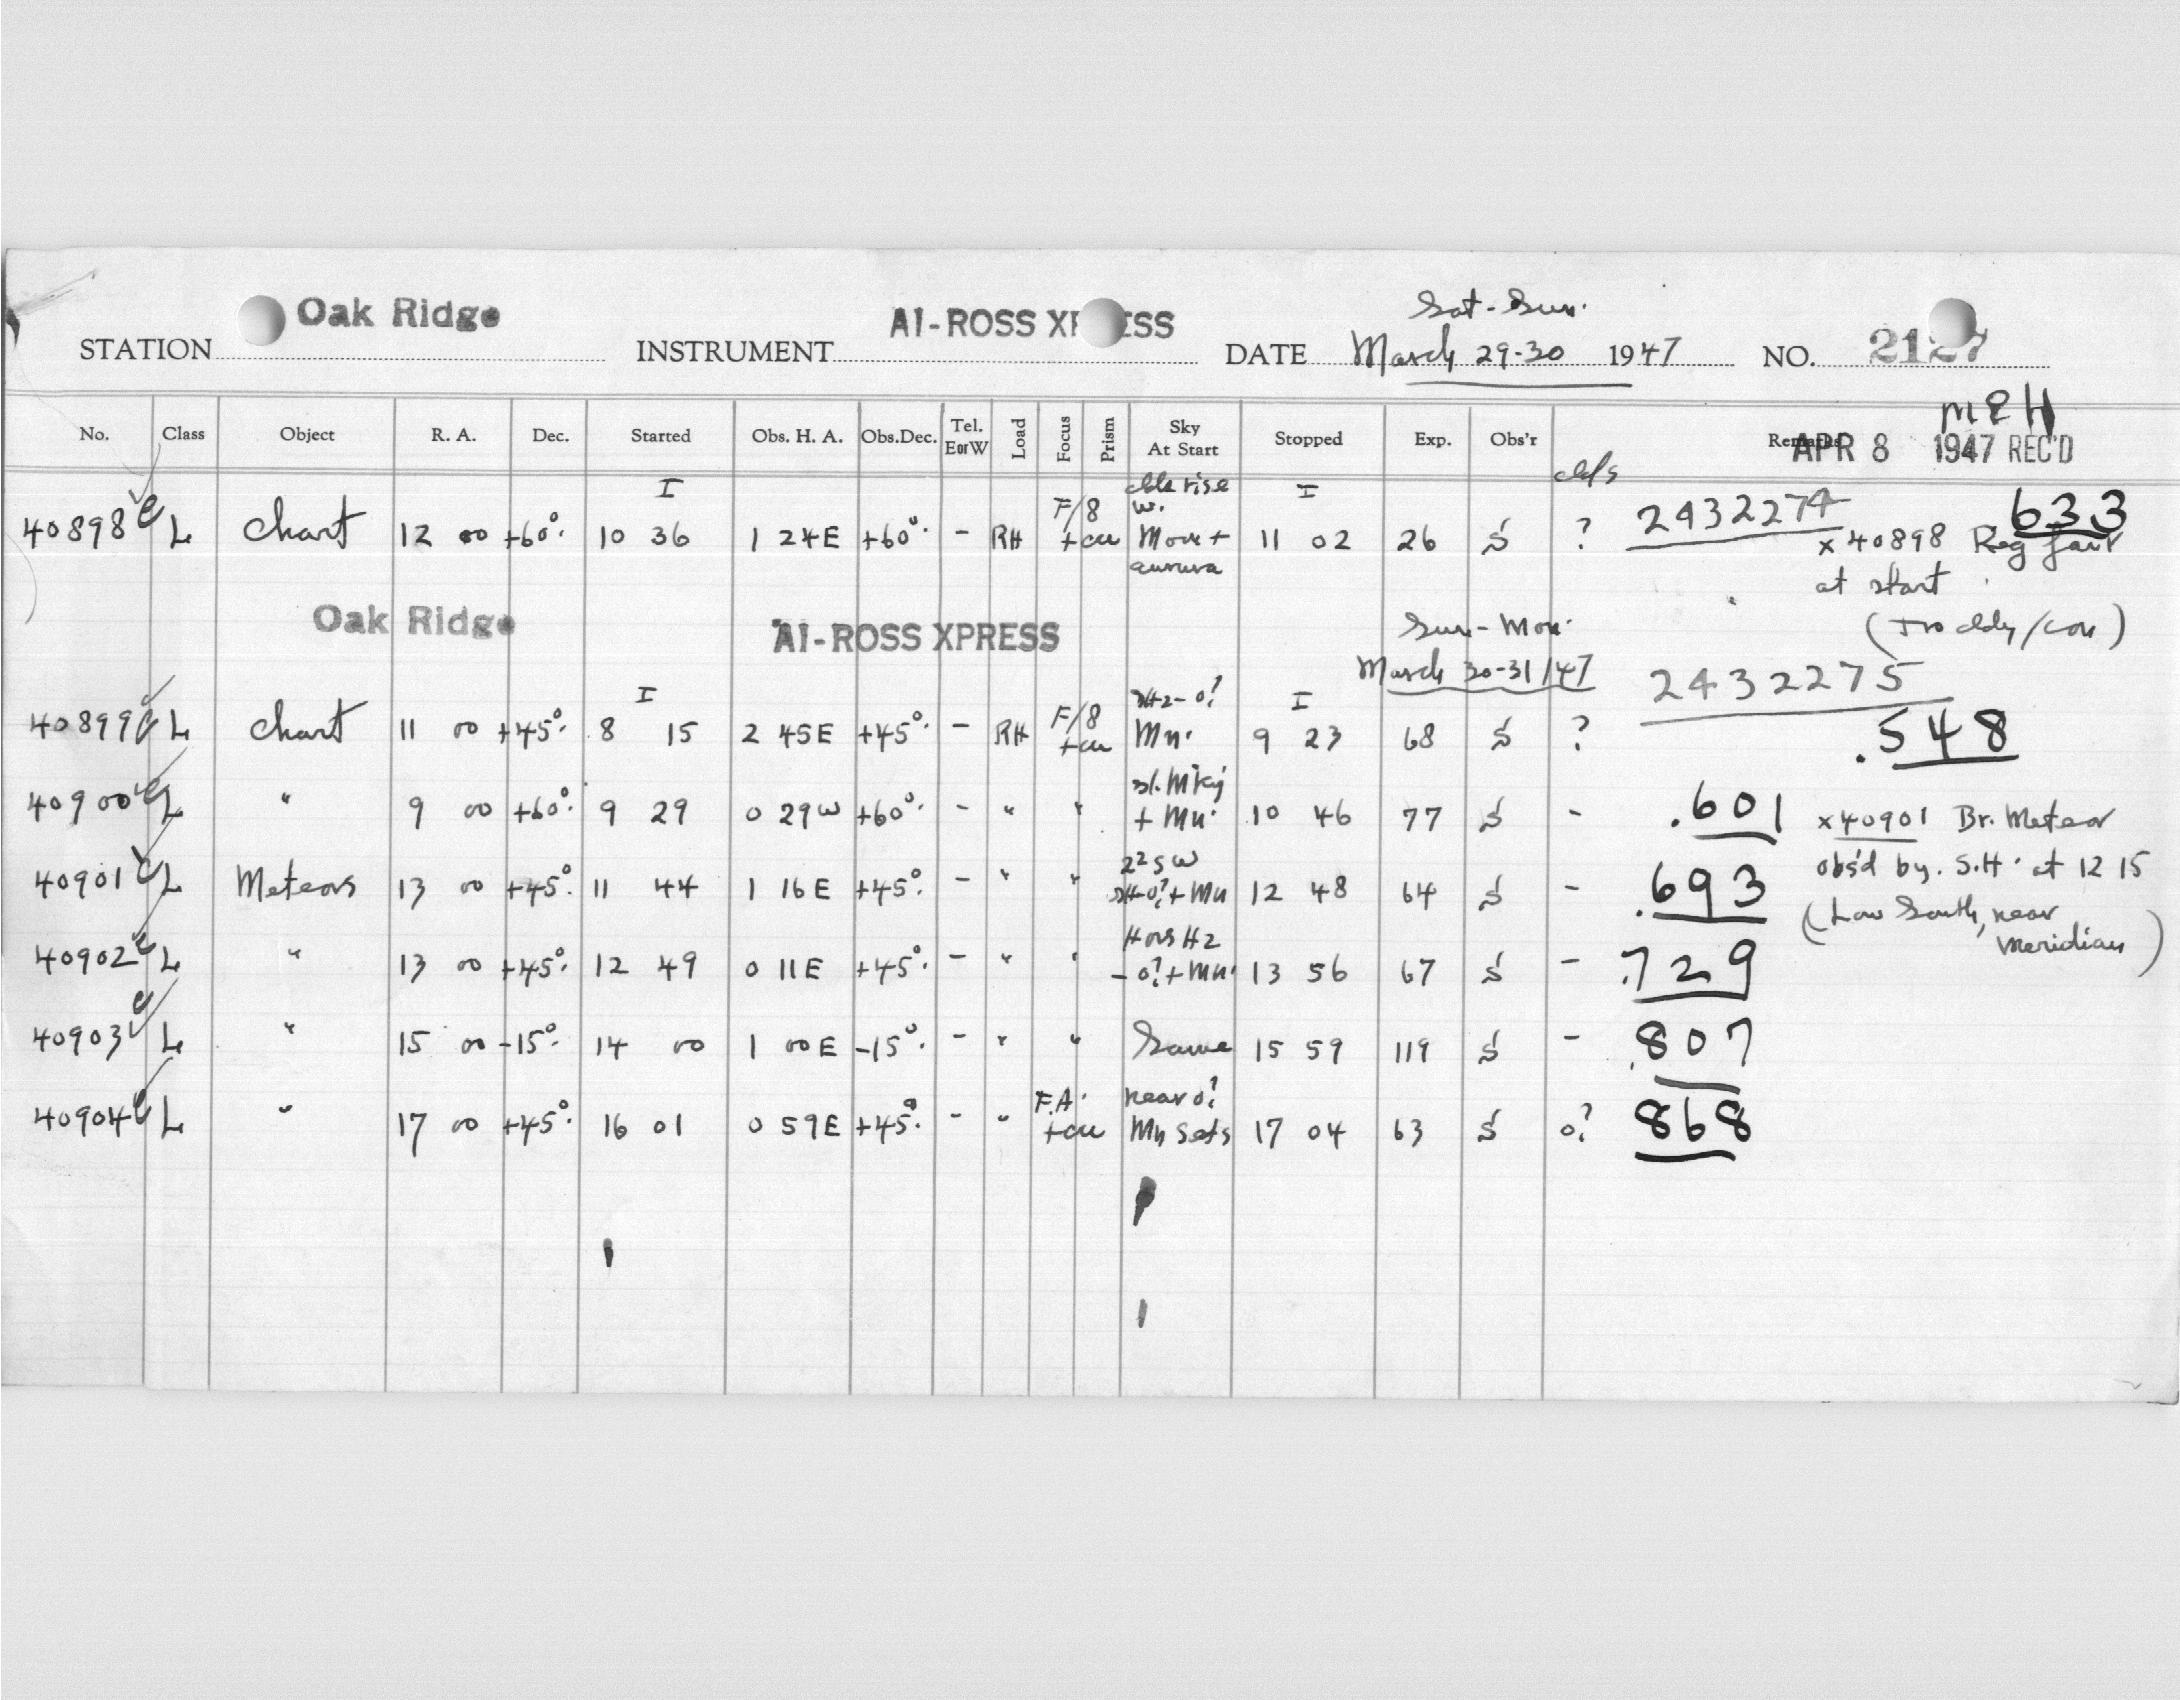 Oak Ridge AI-ROSS XPRESS Sat-Sun.
STATION INSTRUMENT DATE March 29-30 1947 NO. 2127
MRH
No. Class Object R. A. Dec. Started Obs. H. A. Obs.Dec. Tel. EorW Load Focus Prism Sky At Start Stopped Exp. Obs'r Remarks APR 8 1947 REC'D
clds
I F/8 rise w. I
40898 L Chart 12 00 +60° 10 36 1 24E +60° - RH Moon + 11 02 26 S ? 2432274 633
aurora
x 40898 Reg fair
at start
Oak Ridge AI-ROSS XPRESS Sun-Mon.
March 30-31/47
2432275
I F/8 I
40899 L Chart 11 00 +45° 8 15 2 45E +45° - RH Mn. 9 23 68 S ? .548
40900 L " 9 00 +60° 9 29 0 29W +60° - " " + Mn. 10 46 77 S - .601
40901 L Meteors 13 00 +45° 11 44 1 16E +45° - " " + Mn 12 48 64 S - .693
x40901 Br. Meteor
obs'd by. S.H. at 12 15
(Low South, near
Meridian)
40902 L " 13 00 +45° 12 49 0 11E +45° - " " -0? + Mn. 13 56 67 S - .729
40903 L " 15 00 -15° 14 00 1 00E -15° - " " Same 15 59 119 S - .807
F.A. near 0?
40904 L " 17 00 +45° 16 01 0 59E +45° - " Mn sets 17 04 63 S 0? 868